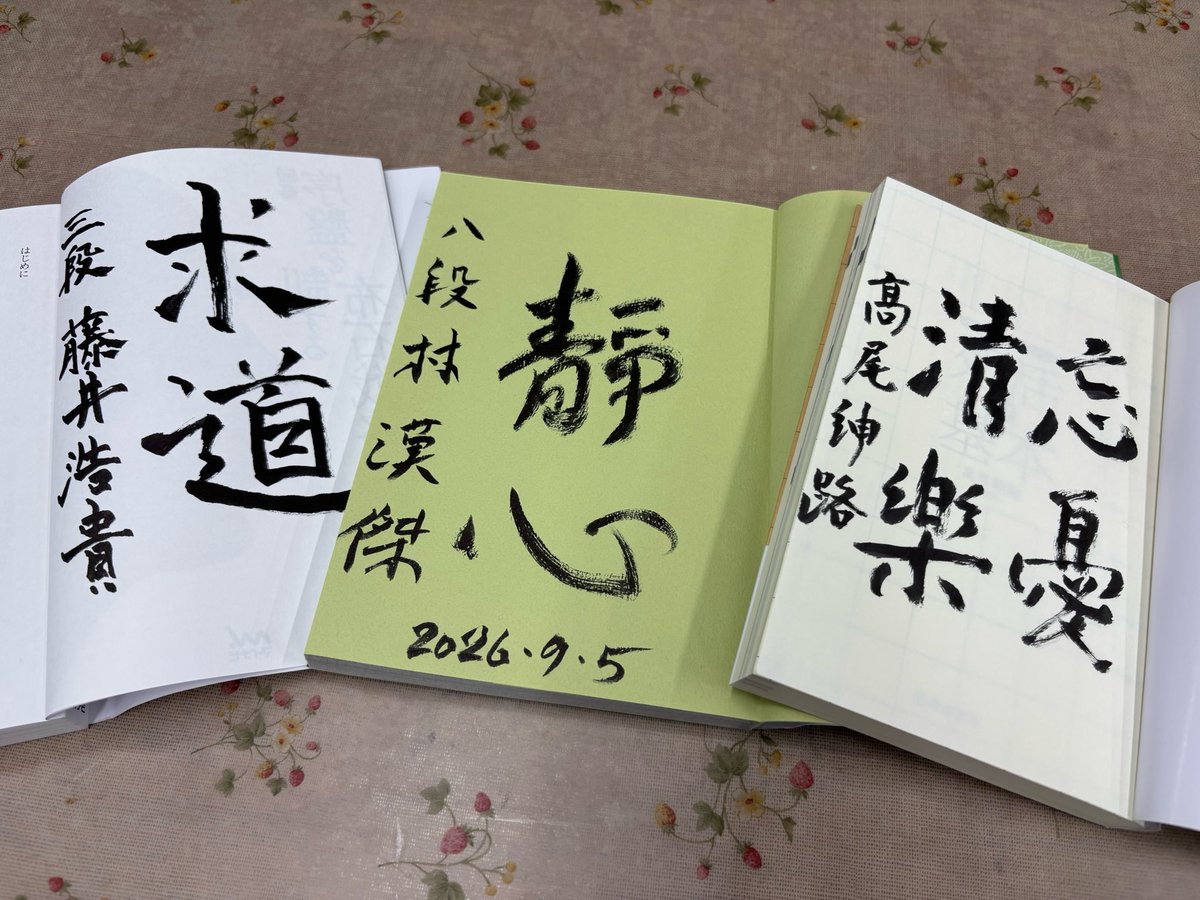 求道
三段 藤井浩貴
はじめに
靜心
八段 林漢傑
2026.9.5
忘憂
清樂
高尾紳路